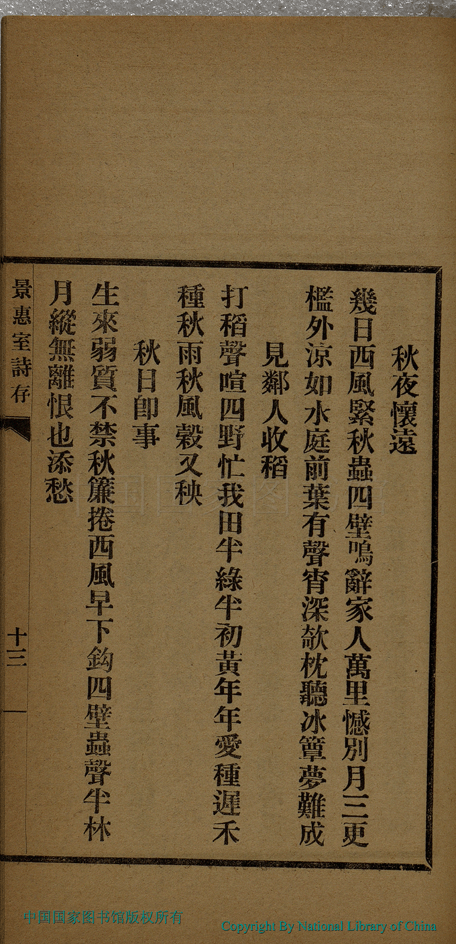 秋夜懷遠
幾日西風緊秋蟲四壁鳴辭家人萬里憾別月三更
檻外涼如水庭前葉有聲宵深欹枕聽冰簟夢難成
見鄰人收稻
打稻聲喧四野忙我田半綠半初黃年年愛種遲禾
種秋雨秋風穀又秧
秋日卽事
生來弱質不禁秋簾捲西風早下鈎四壁蟲聲半林
月縱無離恨也添愁
景惠室詩存
十三
中国国家图书馆版权所有
Copyright By National Library of China